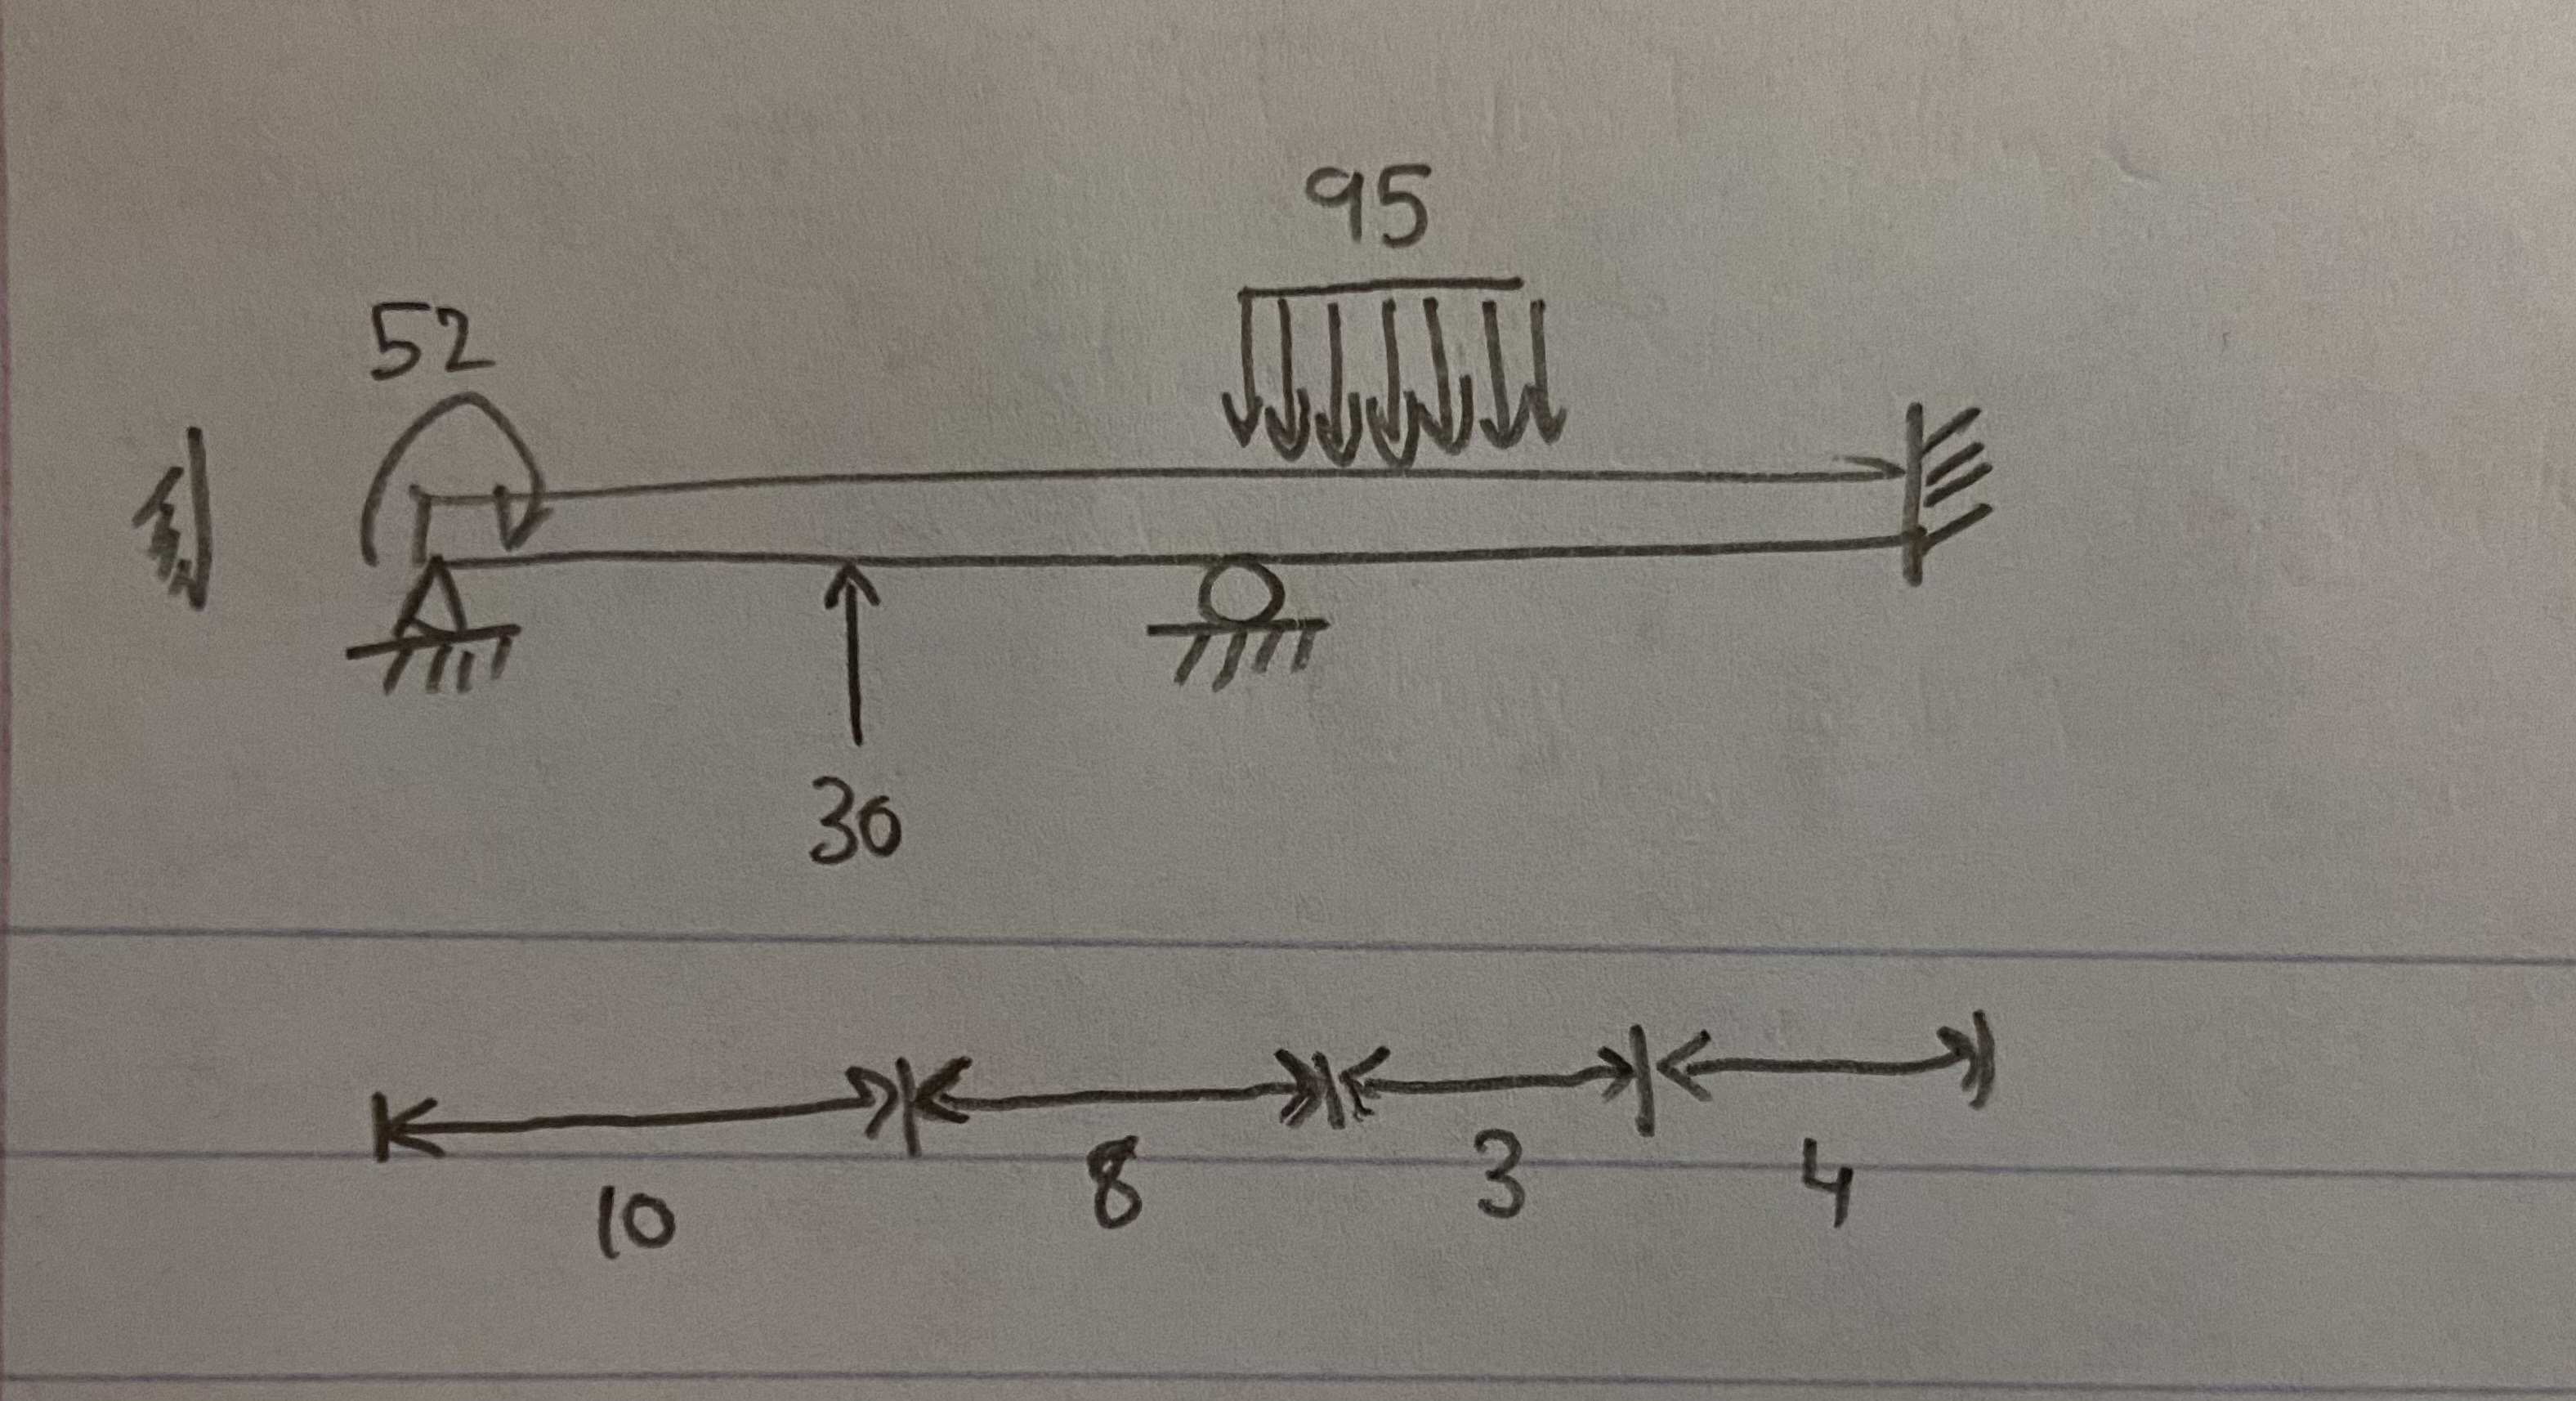 95
52
30
10 8 3 4